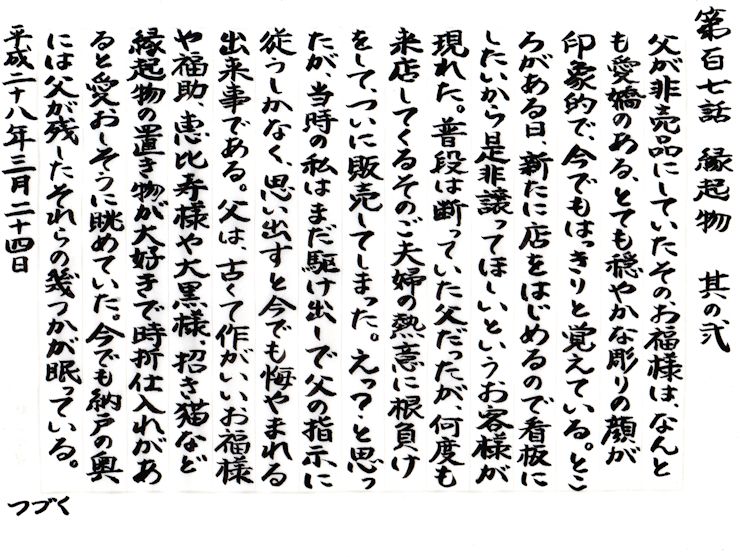 第百七話　縁起物　其の弐
父が非売品にしていたそのお福様は、なんと
も愛嬌のある、とても穏やかな彫りの顔が
印象的で、今でもはっきりと覚えている。とこ
ろがある日、新たに店をはじめるので看板に
したいから是非譲ってほしいというお客様が
現れた。普段は断っていた父だったが、何度も
来店してくるそのご夫婦の熱意に根負け
をして、ついに販売してしまった。えっ？と思っ
たが、当時の私はまだ駆け出しで父の指示に
従うしかなく、思い出すと今でも悔やまれる
出来事である。父は、古くて作がいいお福様
や福助、恵比寿様や大黒様、招き猫など
縁起物の置き物が大好きで時折仕入れがあ
ると愛おしそうに眺めていた。今でも納戸の奥
には父が残したそれらの幾つかが眠っている。
平成二十八年三月二十四日
つづく